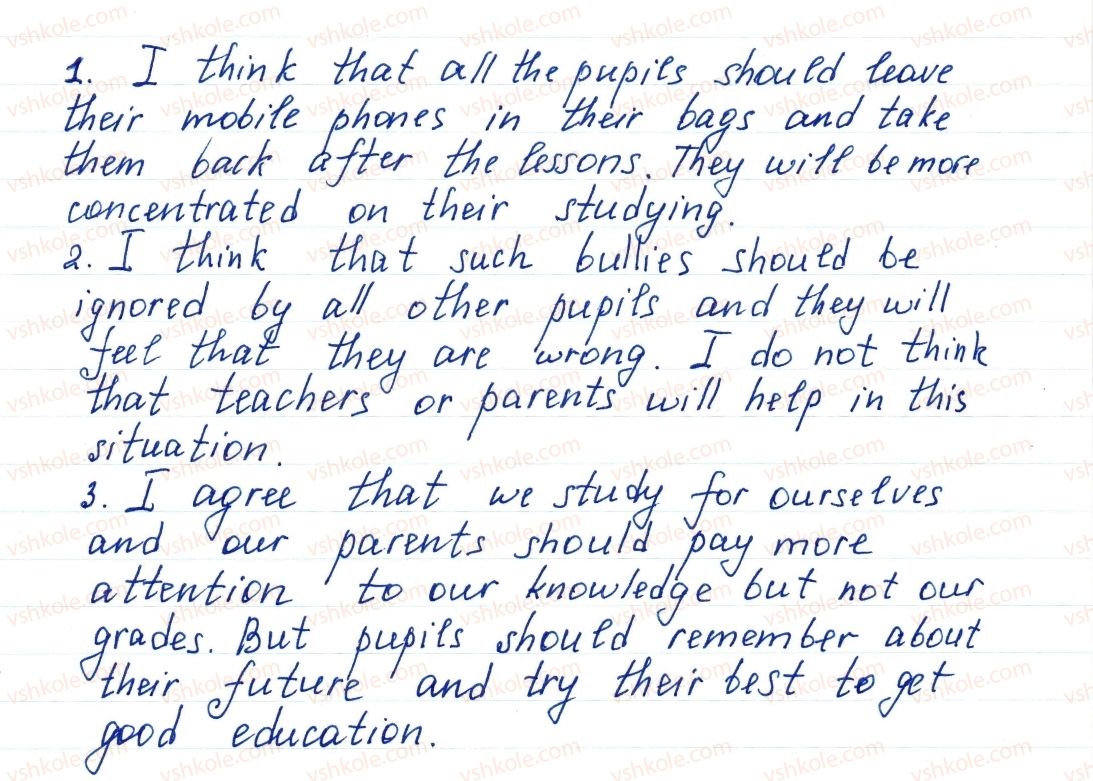 1. I think that all the pupils should leave
their mobile phones in their bags and take
them back after the lessons. They will be more
concentrated on their studying.
2. I think that such bullies should be
ignored by all other pupils and they will
feel that they are wrong. I do not think
that teachers or parents will help in this
situation.
3. I agree that we study for ourselves
and our parents should pay more
attention to our knowledge but not our
grades. But pupils should remember about
their future and try their best to get
good education.
vshkole.com